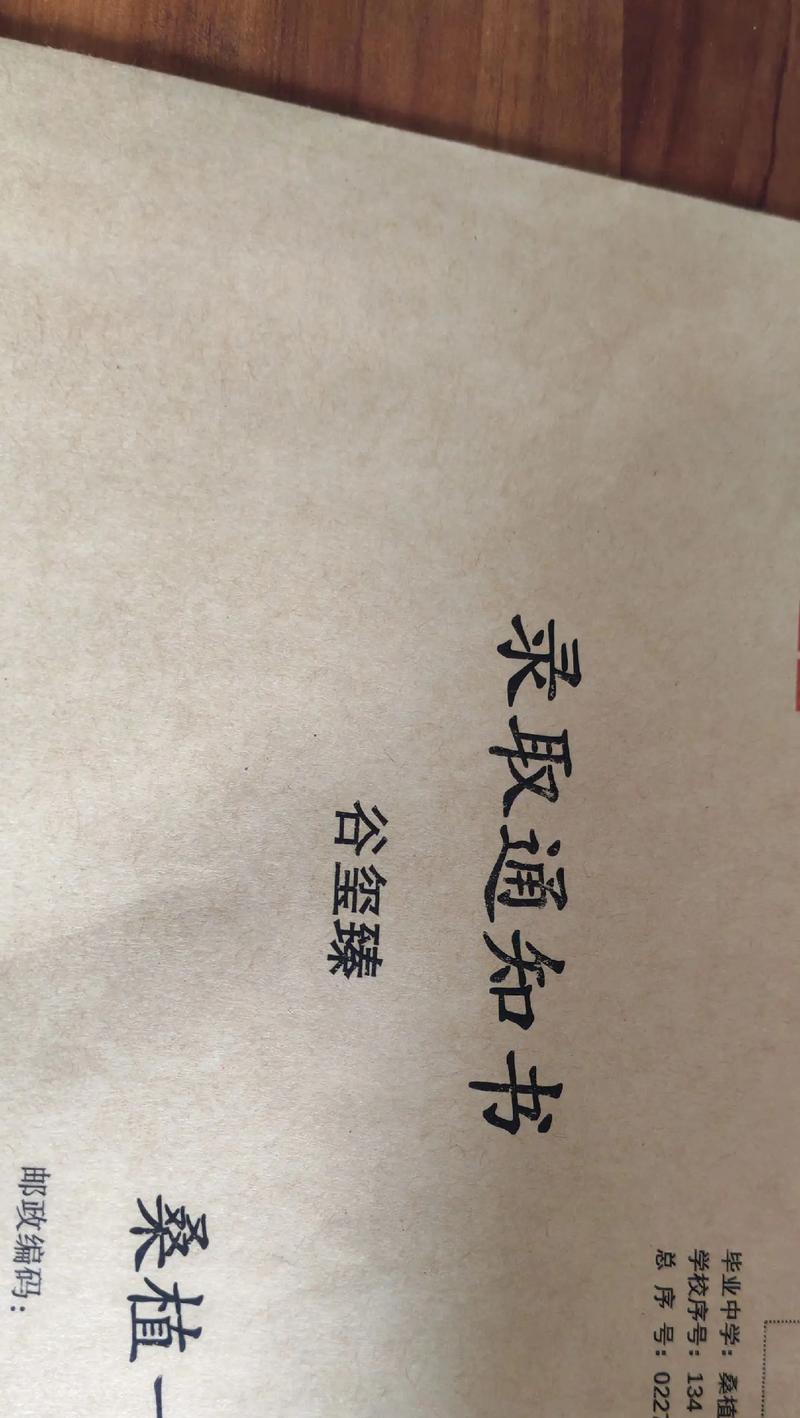 毕业中学：桑植
学校序号：134
总 序 号：0227
录取通知书
谷玺臻
桑植一
邮政编码：